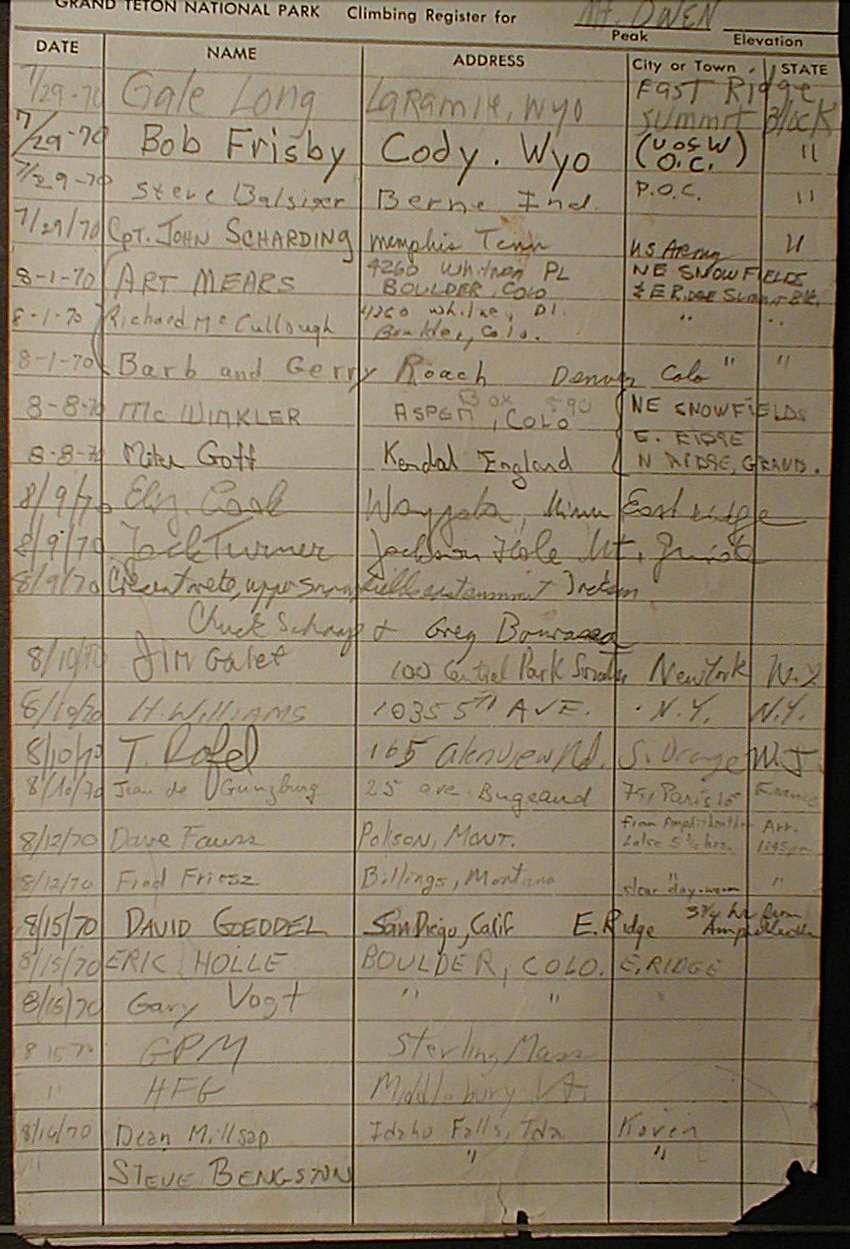 GRAND TETON NATIONAL PARK Climbing Register for Mt. OWEN
Peak Elevation
DATE NAME ADDRESS City or Town STATE
7/29-70 Gale Long Laramie, Wyo East Ridge
Summit Block
7/29-70 Bob Frisby Cody. Wyo (U of W O.C.) "
7/29-70 Steve Balsiger Berne Ind. P.O.C. "
7/29/70 Cpt. JOHN SCHARDING Memphis Tenn US Army "
8-1-70 ART MEARS 4260 Whitman PL NE SNOWFIELDS
BOULDER, COLO & E RIDGE Summit Blk.
8-1-70 Richard McCullough 4260 Pl. " "
Boulder, Colo.
8-1-70 Barb and Gerry Roach Denver Colo " "
8-8-70 Mc WINKLER Box 590 NE SNOWFIELDS
ASPEN, COLO
E. RIDGE
8-8-70 Mike Goff Kendal England N RIDGE, GRAND.
8/9/70 Eliz. Cook Wayzata, Minn East ridge
8/9/70 Jack Turner Jackson Hole Mt. Guide
8/9/70 upper snowfields east summit Jackson
Chuck Schaap & Greg Bourassa
8/10/70 JIM Galet 100 Central Park South New York N.Y.
8/10/70 H. WILLIAMS 1035 5TH AVE. N.Y. N.Y.
8/10/70 T. 165 Glenview Rd. S. Orange N.J.
8/10/70 Jean de Gunzburg 25 ave. Bugeaud 75, Paris 16 France
8/12/70 Dave Polson, MONT. from Amphitheater Arr.
Lake 5 1/2 hrs.
8/12/70 Fred Friesz Billings, Montana " "
clear day-warm
8/15/70 DAVID GOEDDEL San Diego, Calif E. Ridge 3 3/4 hr from
Amphitheatre
8/15/70 ERIC HOLLE BOULDER, COLO. E. RIDGE
8/15/70 Gary Vogt " " "
8 15 70 GPM Sterling Mass
" HFG Middlebury Vt.
8/16/70 Dean Millsap Idaho Falls, Ida Koven
" STEVE BENGSTON " "